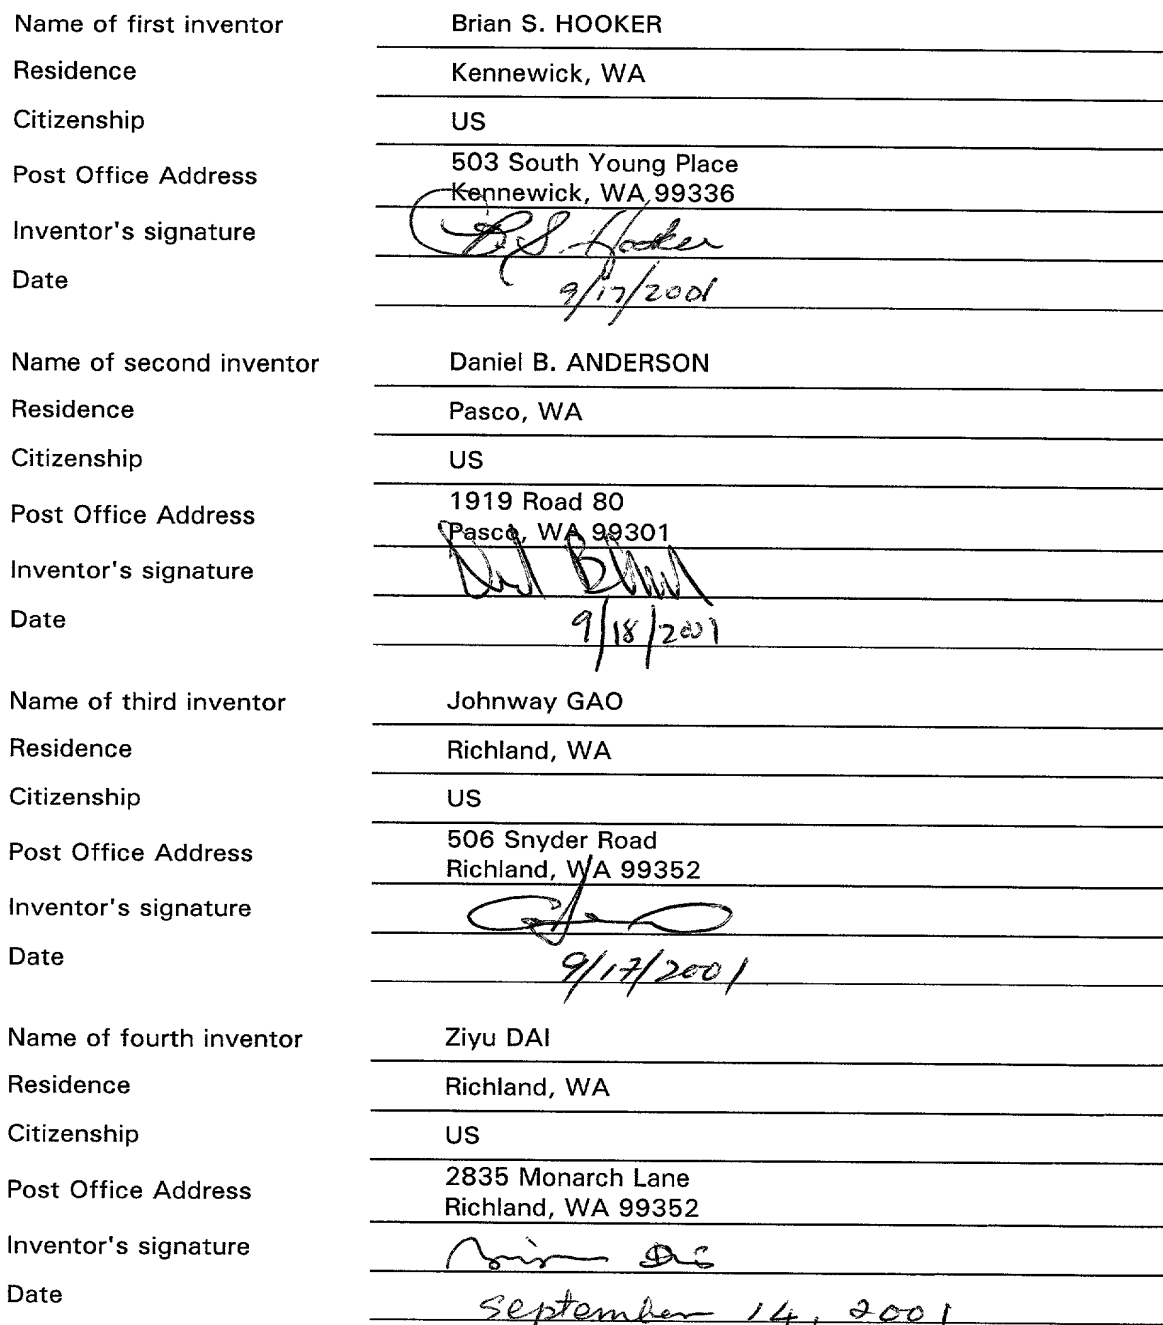 Name of first inventor Brian S. HOOKER
Residence Kennewick, WA
Citizenship US
Post Office Address 503 South Young Place
Kennewick, WA 99336
Inventor's signature B.S. Hooker
Date 9/17/2001
Name of second inventor Daniel B. ANDERSON
Residence Pasco, WA
Citizenship US
Post Office Address 1919 Road 80
Pasco, WA 99301
Inventor's signature
Date 9/18/2001
Name of third inventor Johnway GAO
Residence Richland, WA
Citizenship US
Post Office Address 506 Snyder Road
Richland, WA 99352
Inventor's signature
Date 9/17/2001
Name of fourth inventor Ziyu DAI
Residence Richland, WA
Citizenship US
Post Office Address 2835 Monarch Lane
Richland, WA 99352
Inventor's signature
Date September 14, 2001